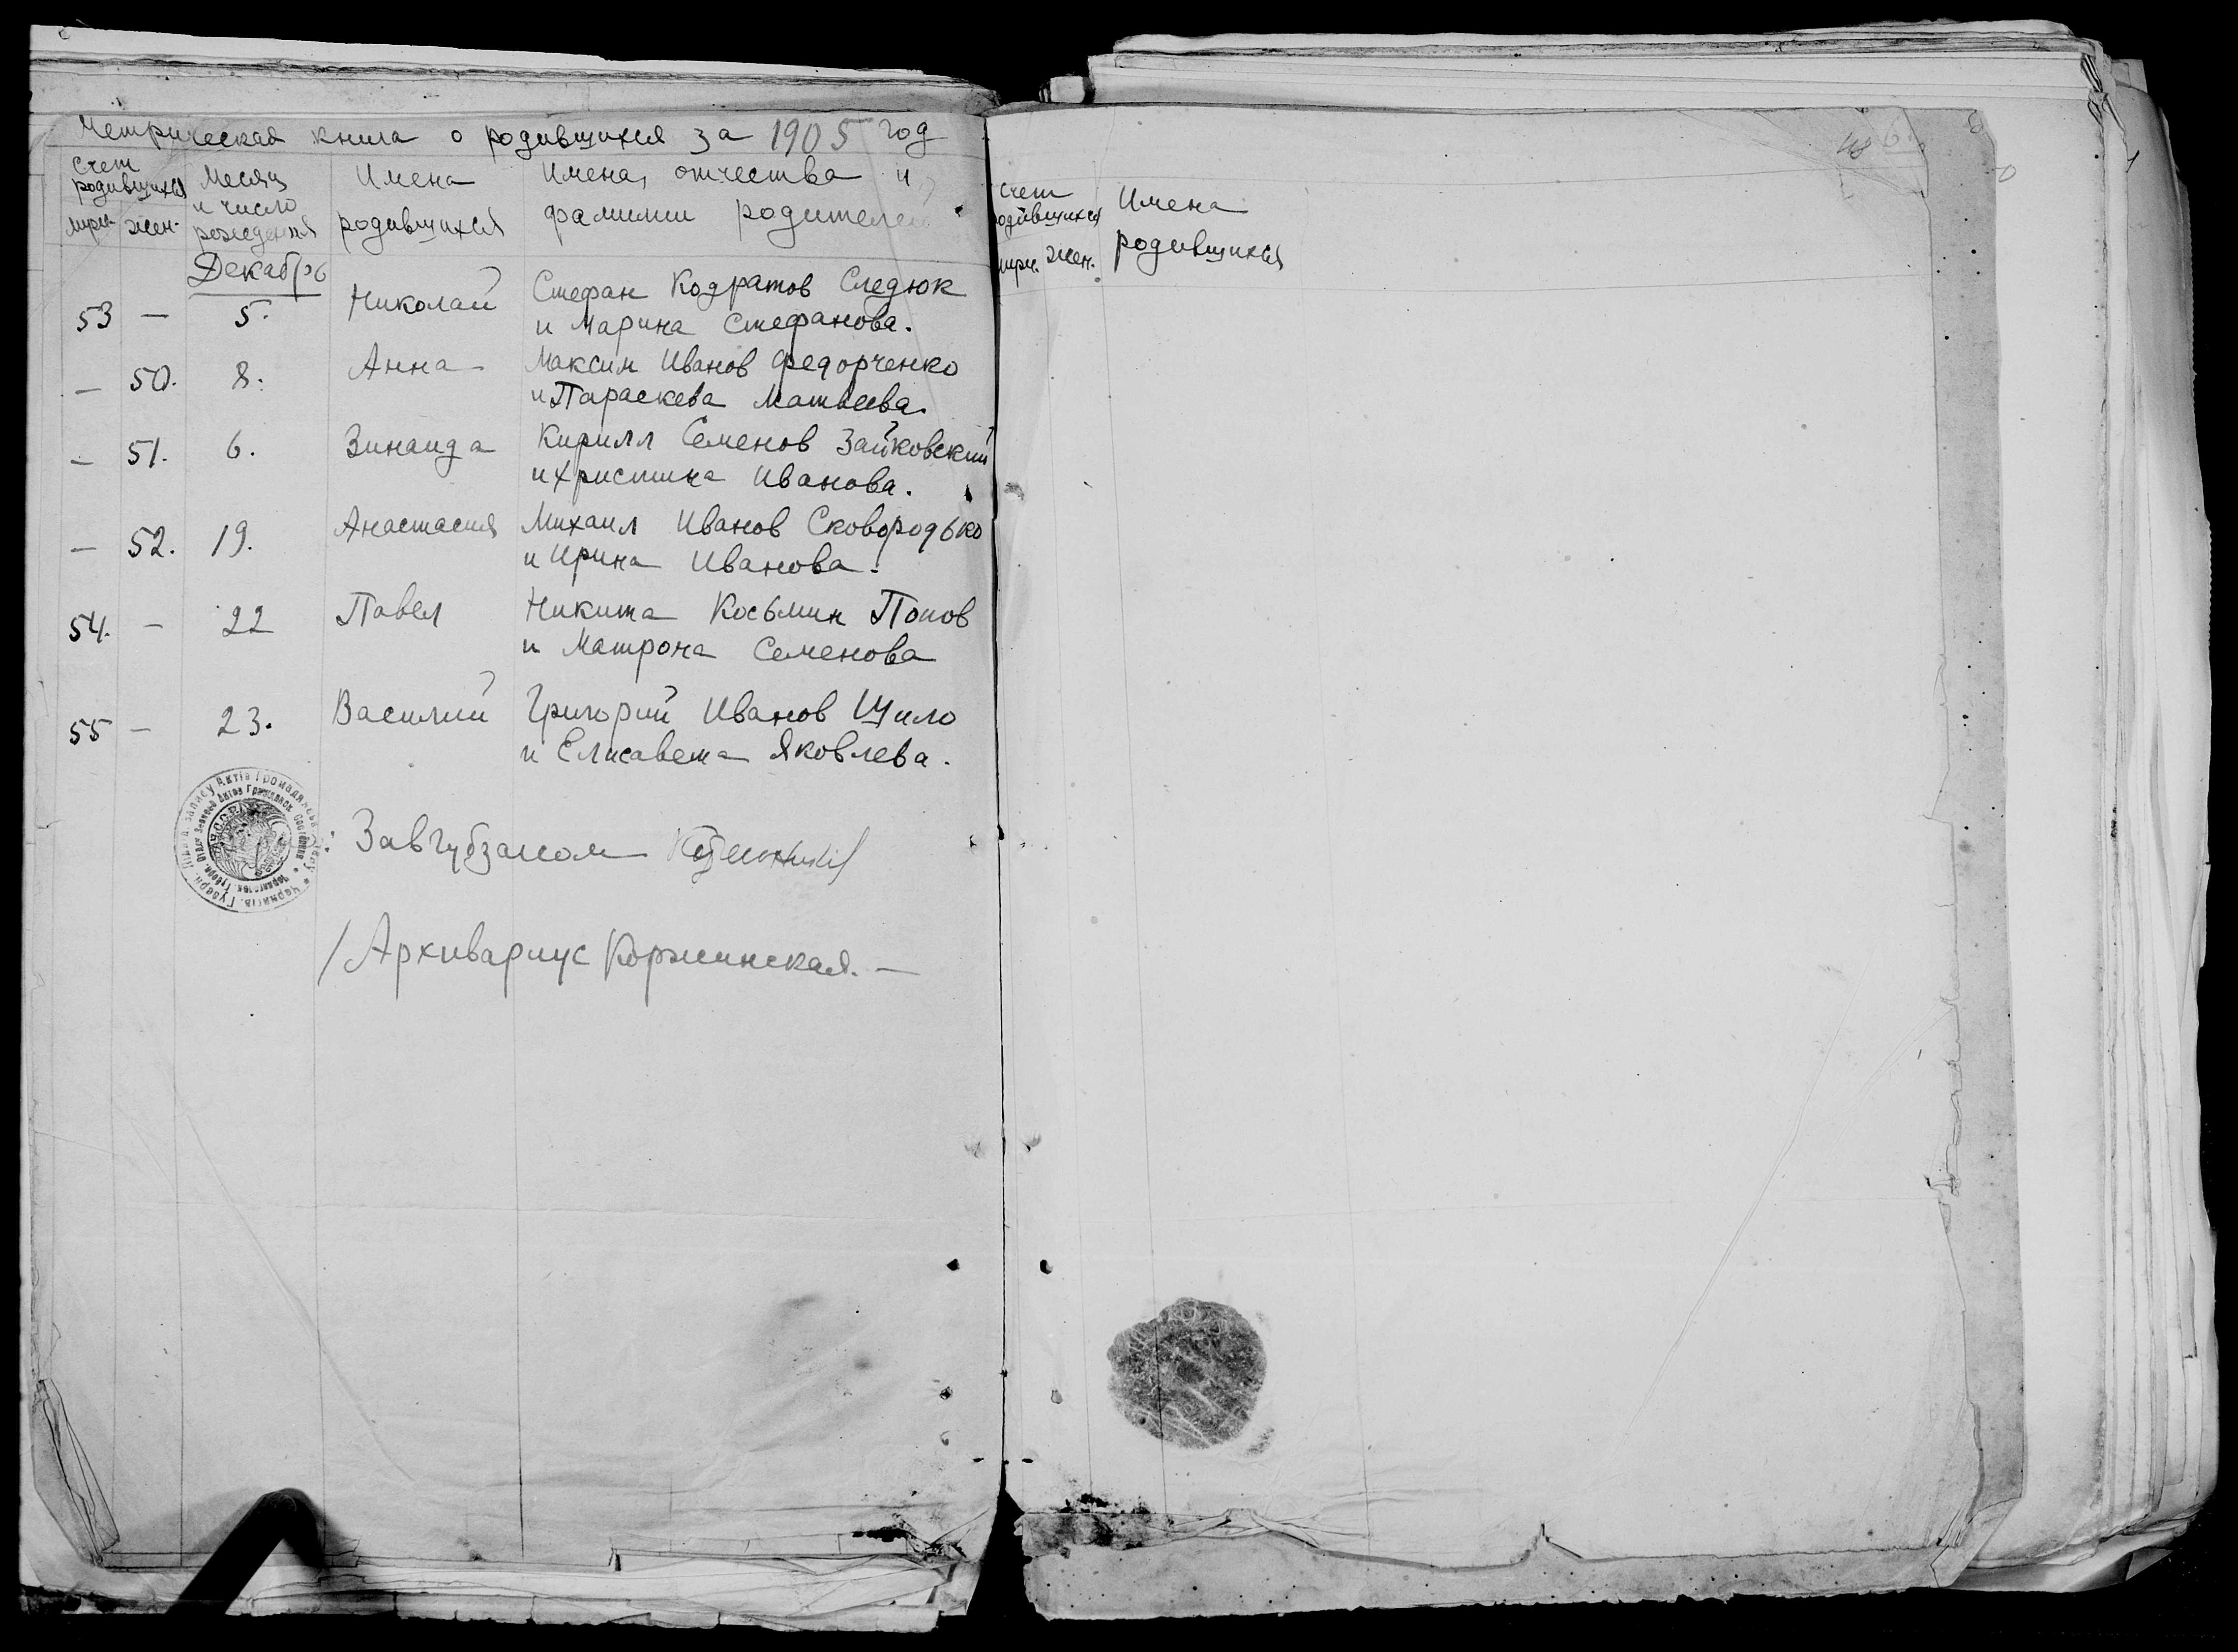 Метрическая книга о родившихся за 1905 год
Счет родившихся
муж. жен.
Месяц и число рождения
Имена родившихся
Имена, отчества и фамилии родителей
Декабрь
53 — 5. Николай Стефан Кодратов Следюк
и Марина Стефанова.
— 50. 8. Анна Максим Иванов Федорченко
и Параскева Матвеева.
— 51. 6. Зинаида Кирилл Семенов Зайковский
и Христина Иванова.
— 52. 19. Анастасия Михаил Иванов Сковородько
и Ирина Иванова.
54. — 22 Павел Никита Косьмин Попов
и Матрона Семенова
55 — 23. Василий Григорий Иванов Шило
и Елисавета Яковлева.
Завгубзагсом
/Архивариус Коржинская. —
счет
родившихся
муж. жен.
Имена
родившихся